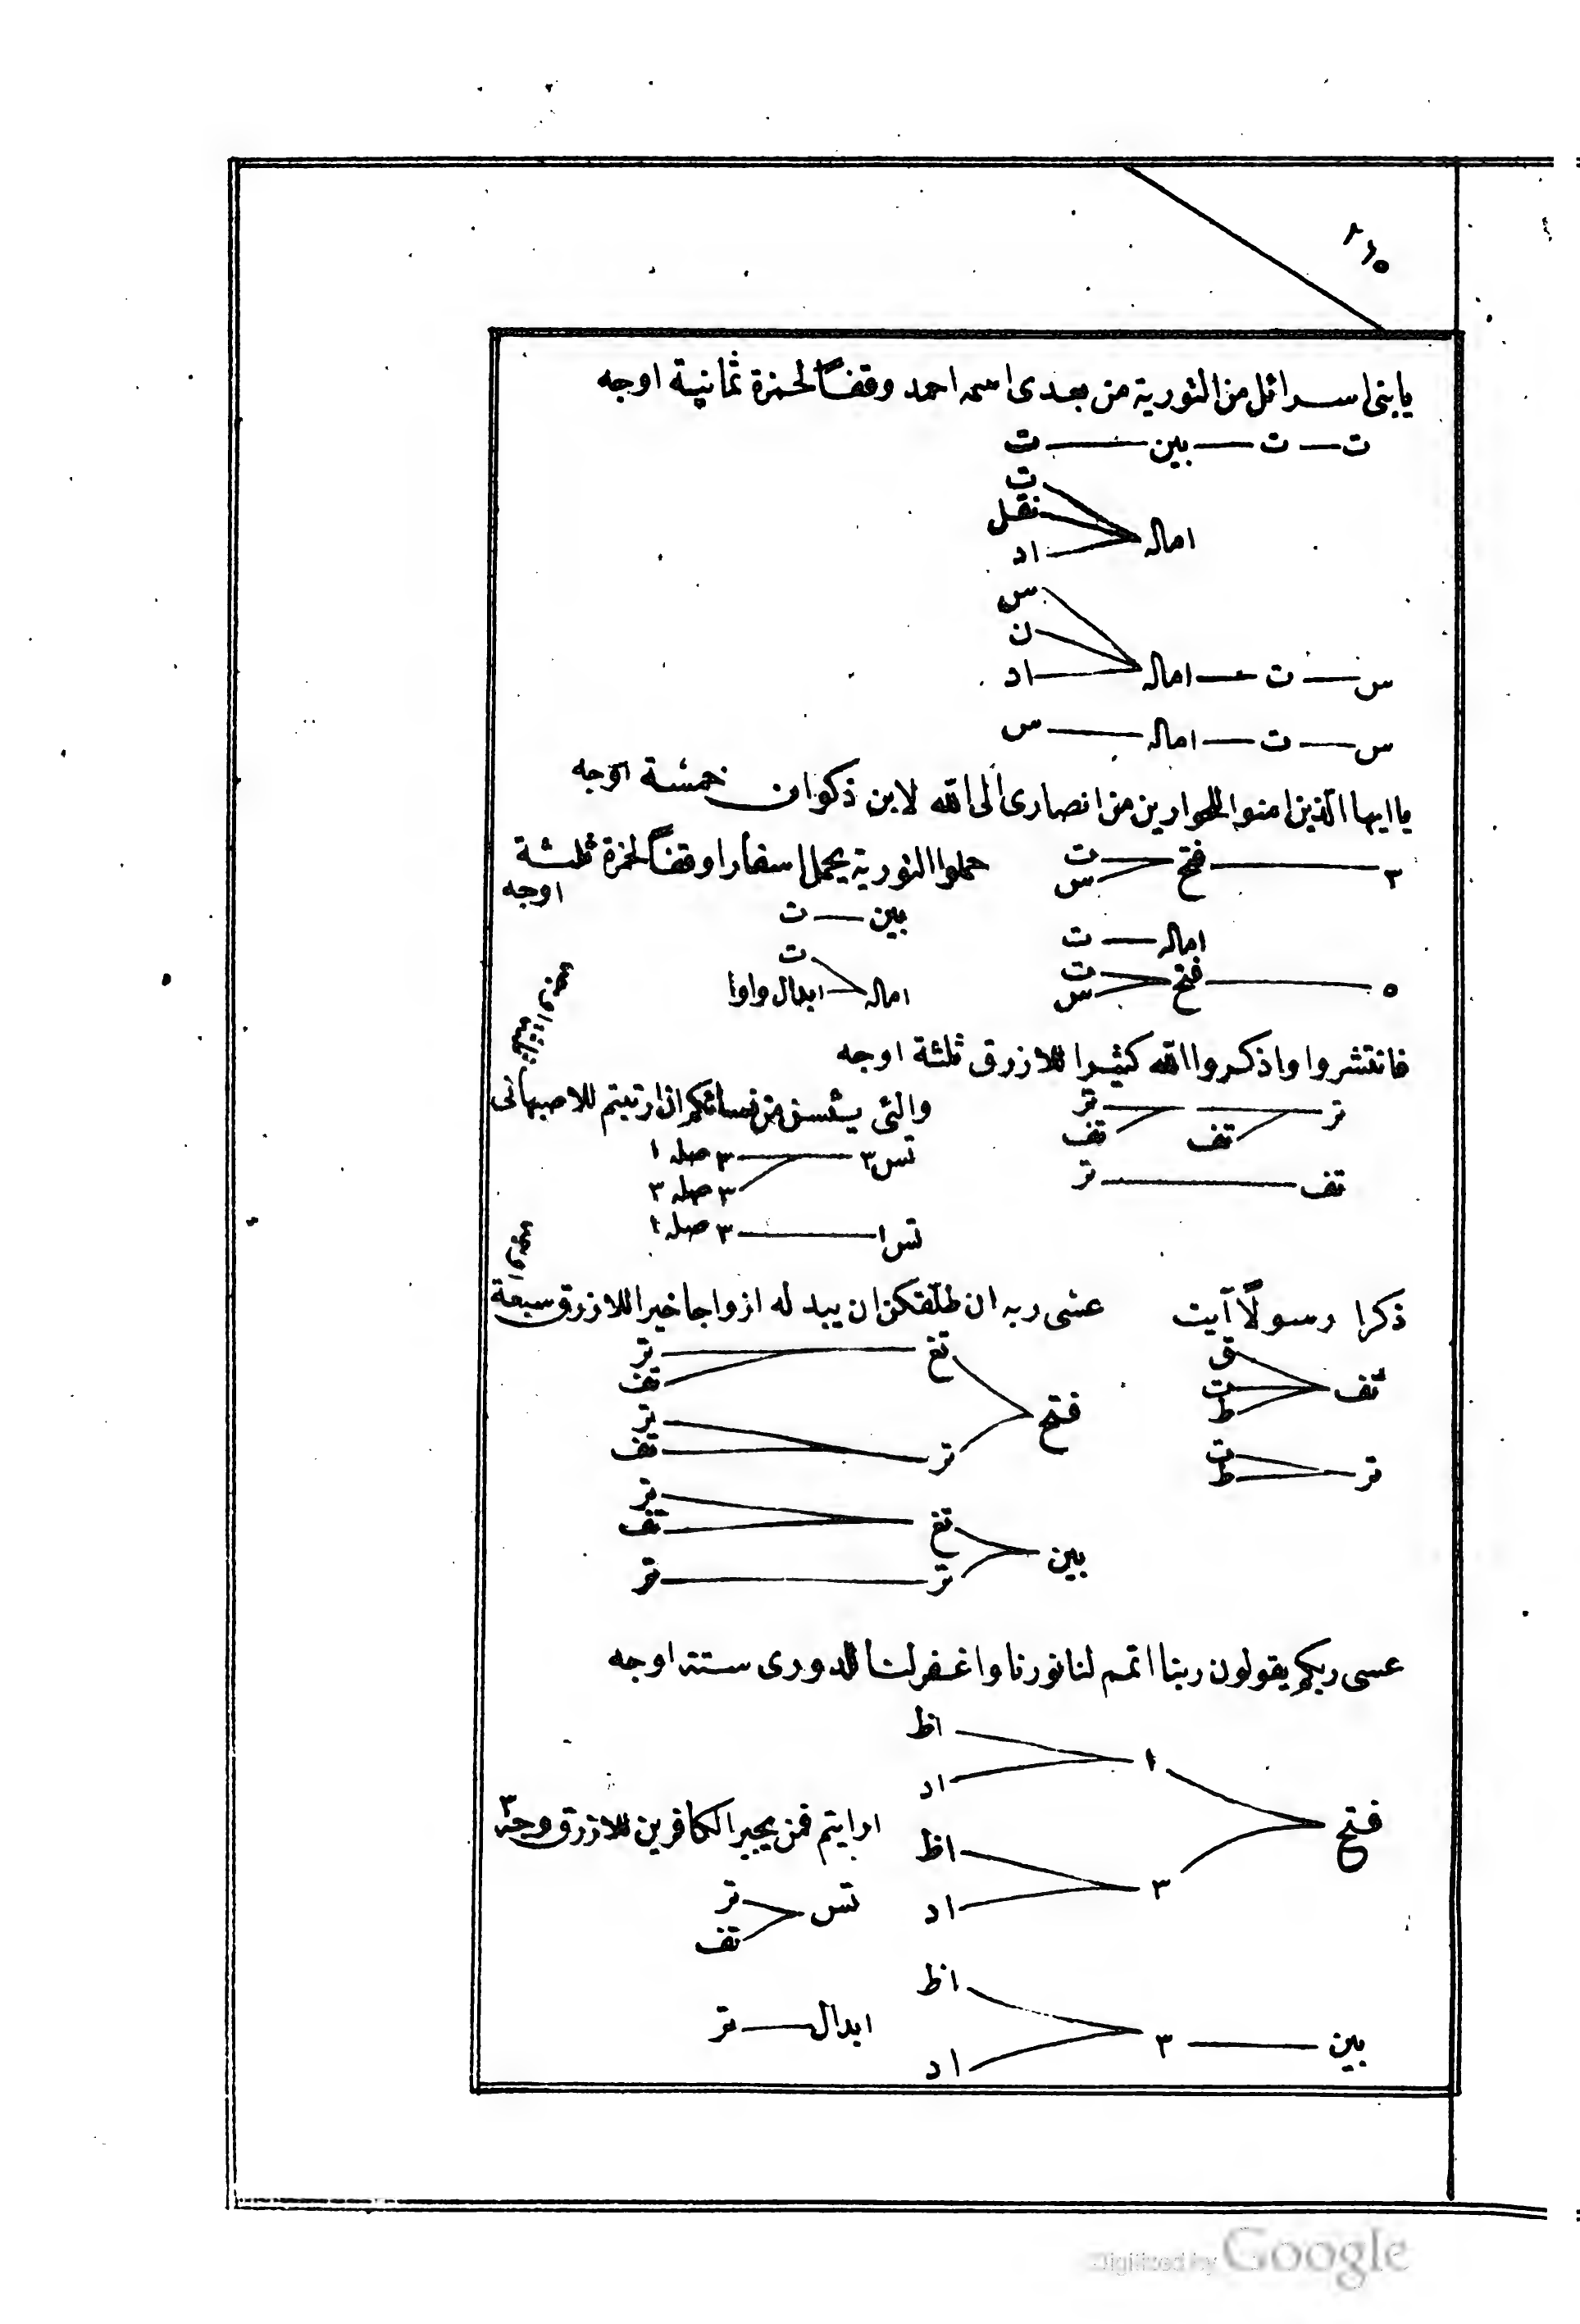 ٢٦٥
يا بنى اسرائل من التورية من بعدى اسمه احمد وقفاً لحمزة ثمانية اوجه
ت ت بين ت
ت
نقل
اماله
اد
س
ن
س ت اماله اد
س ت اماله س
يا ايها الذين امنوا للحوارين من انصارى الى الله لابن ذكوان خمسة اوجه
٣ فتح ت
س
اماله ت
٥ فتح ت
س
حملوا التورية يحمل اسفارا وقفاً لحمزة ثلثة
اوجه
بين ت
ت
اماله ابدال واوا
فانتشروا واذكروا الله كثيرا للازرق ثلثة اوجه
تر تر
تف تف
تف تر
والئى يئسن من نسائكم ان ارتبتم للاصبهانى
تس ٣ ٣ صله ١
٣ صله ٣
تس ١ ٣ صله ١
ذكرا رسولاً آيت
ق
تف ت
ط
ت
تر ط
عسى ربه ان طلقكن ان يبدله ازواجا خيرا للازرق سبعة
اوجه
تغ تر
تف
فتح
تر
تر تف
تر
تغ تف
بين
تر تر
عسى ربكم يقولون ربنا اتمم لنا نورنا واغفر لنا للدورى ستة اوجه
اظ
١
اد
فتح
اظ
٣
اد
اظ
بين ٣
اد
ارايتم فمن يجير الكافرين للازرق وجه ٣
تس تر
تف
ابدال تر
Digitized by Google